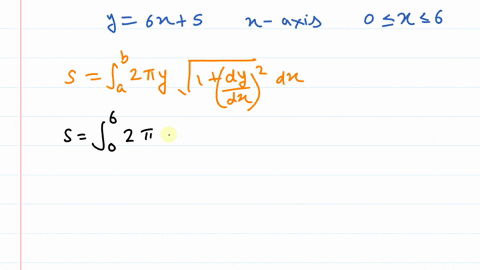 y = 6x + 5 x-axis 0 ≤ x ≤ 6
S = ∫_a^b 2πy √(1 + (dy/dx)²) dx
S = ∫_0^6 2π